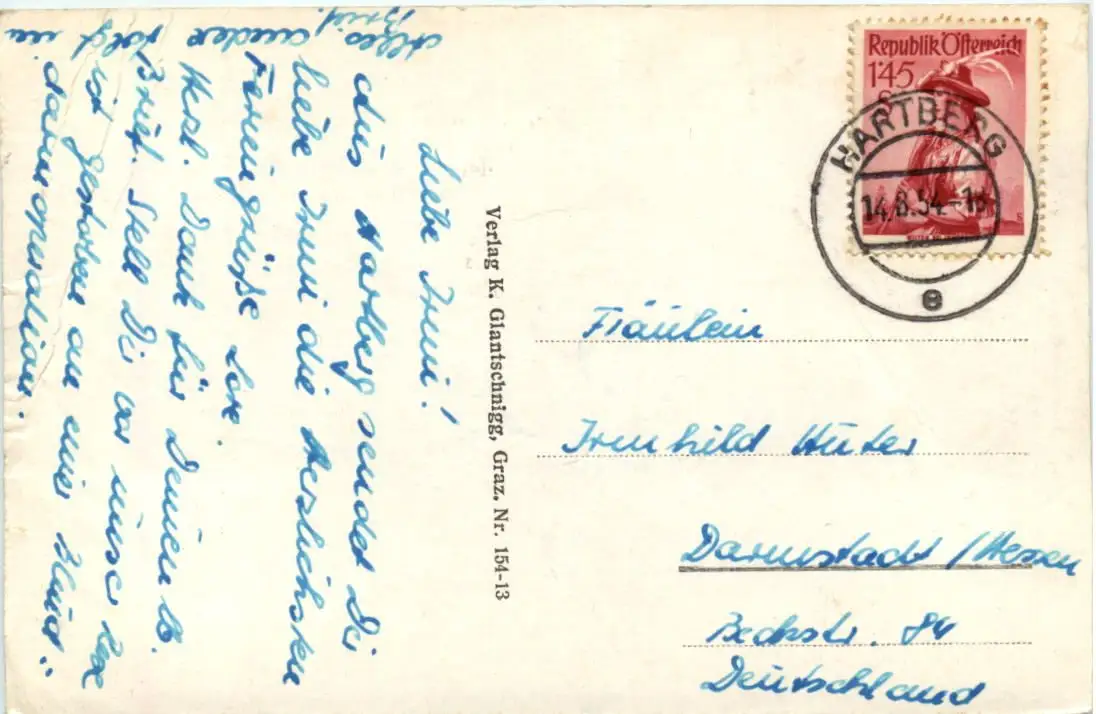 Liebe Irmi!
Aus Hartberg sendet Dir
liebe Irmi die herzlichsten
Feriengrüße Lore.
Herzl. Dank für Deinen lb.
Brief. Stell Dir vor unser Rex
ist gestorben an einer Blind-
darmoperation.
Alles andere folgt im
Brief.
Verlag K. Glantschnigg, Graz. Nr. 154-13
Republik Österreich
1'45
S
HARTBERG
14.8.54.-18
e
Fräulein
Irmhild Huter
Darmstadt / Hessen
Beckstr. 84
Deutschland